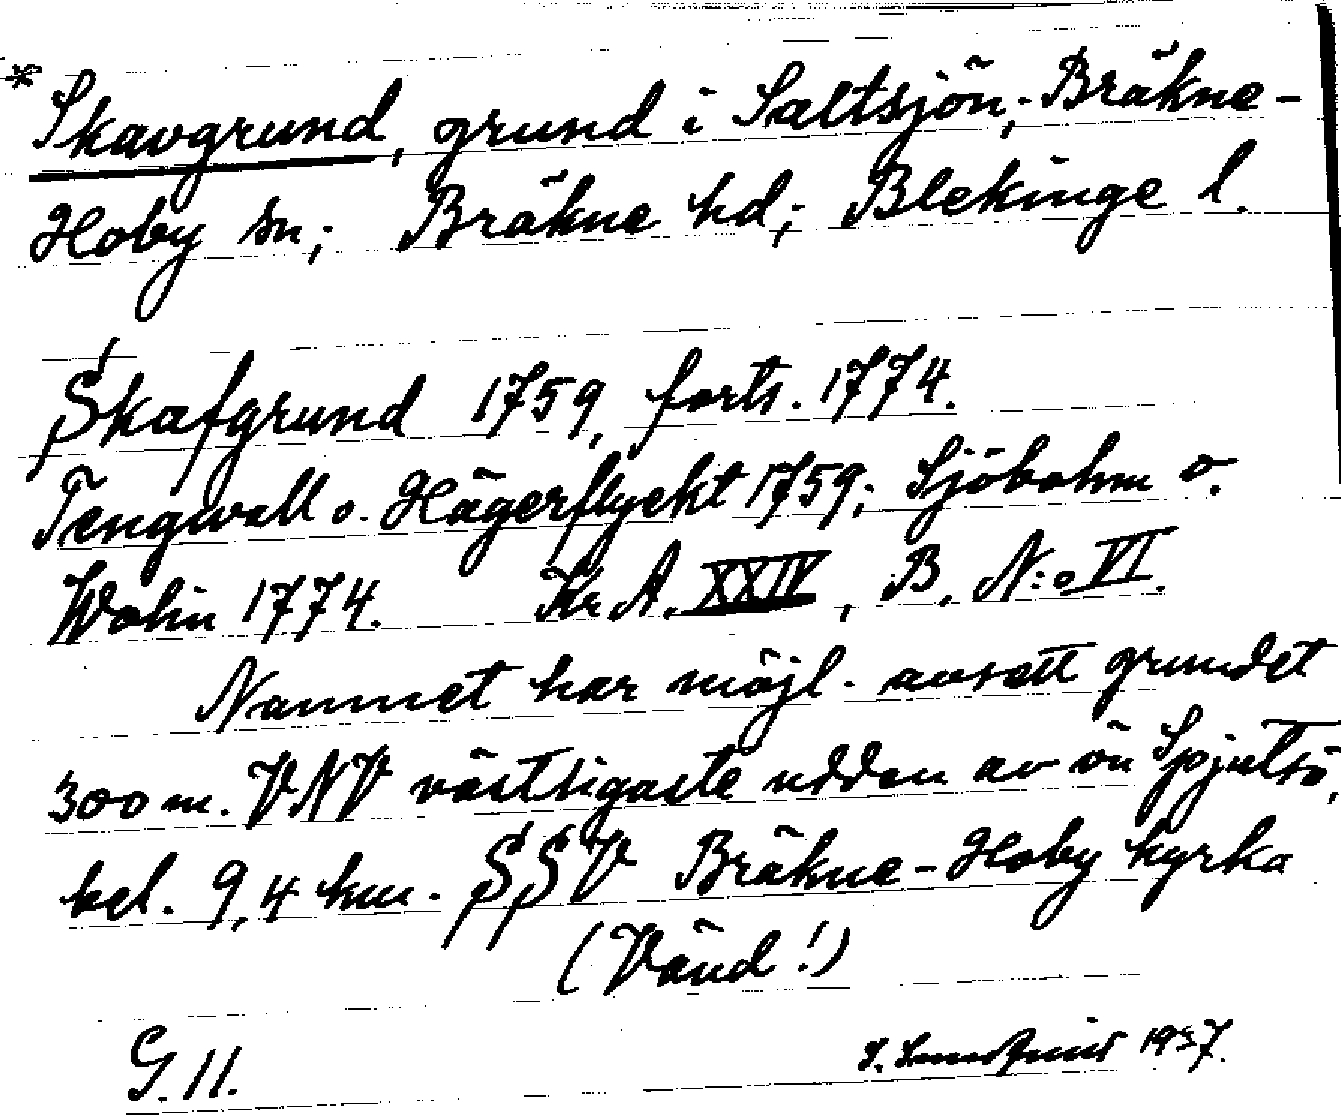 * Skavgrund, grund i Saltsjön; Bräkne-
Hoby sn; Bräkne hd; Blekinge l.
Skafgrund 1759, forts. 1774.
Tengwall o. Hägerflyckt 1759; Sjöbohm o.
Wolin 1774. Kr. A. XXIV, B, N:o VI.
Namnet har möjl. avsett grundet
300 m. VNV västligaste udden av ön Spjutsö,
bel. 9,4 km. SSV Bräkne-Hoby kyrka
(Vänd!)
G. 11.
1937.